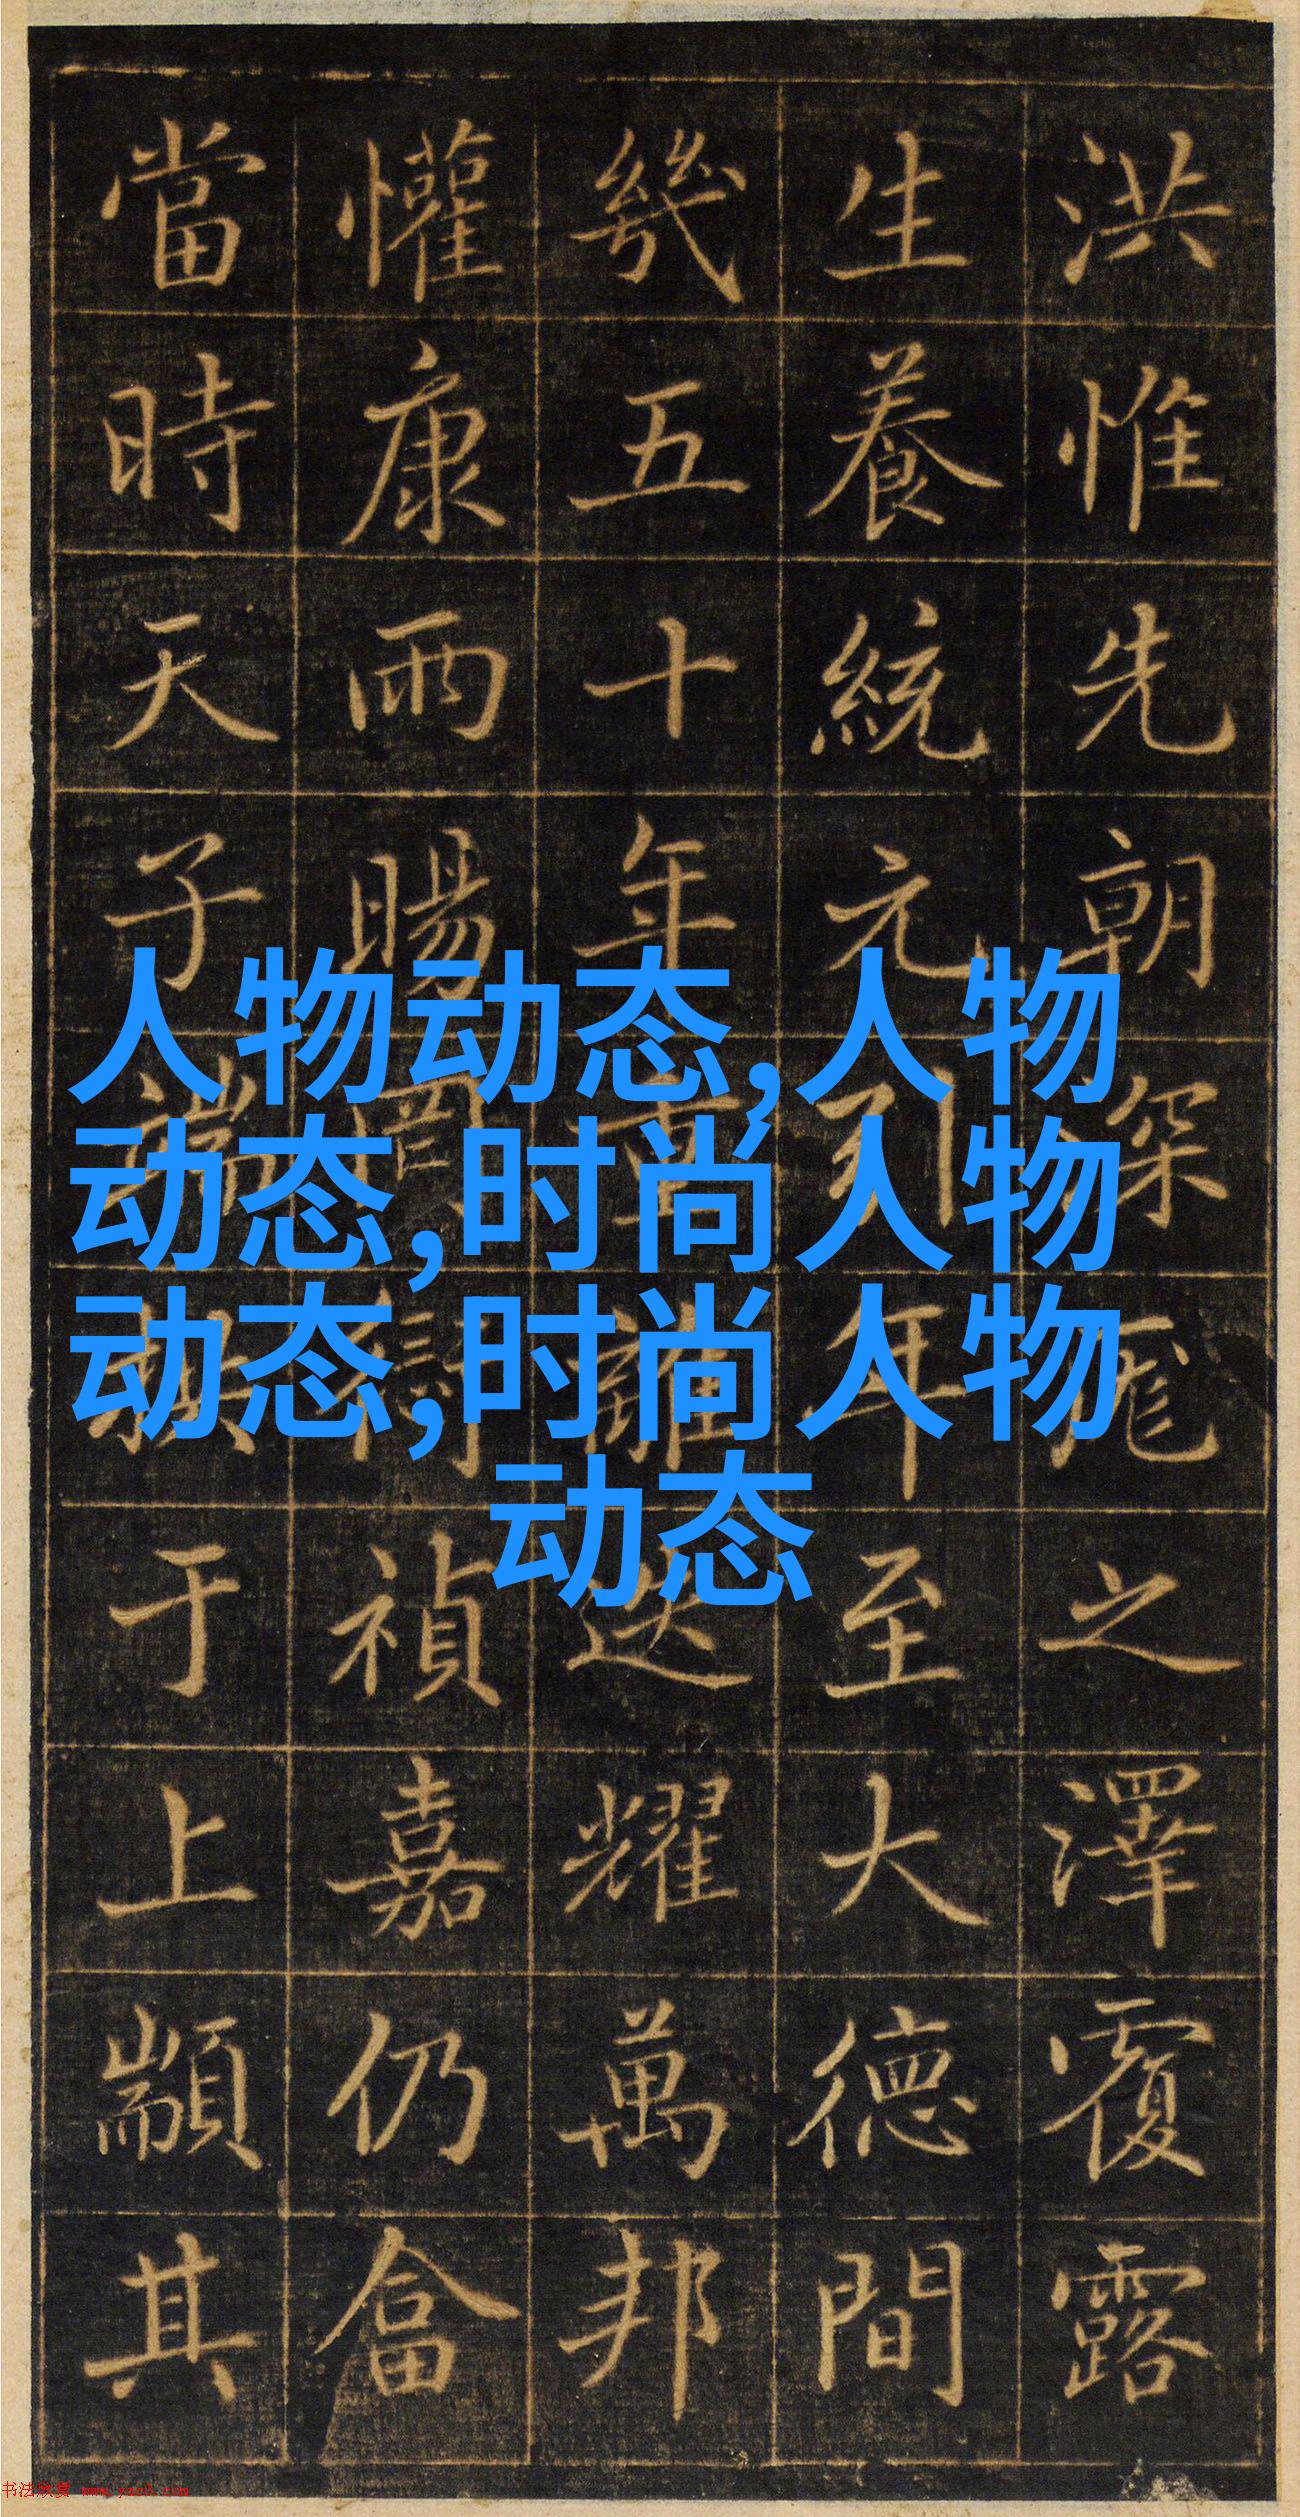 洪惟先朝深之澤覆露
生養統元年至大德間
幾五十年重離迭耀萬邦
懽康雨暘禎嘉仍畣
當時天子端拱于上顓其
人物动态,人物
动态,时尚人物
动态,时尚人物
动态
书法欣赏 www.yac8.com